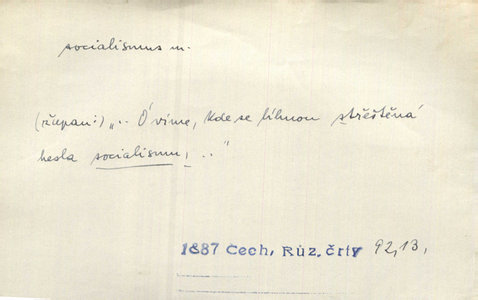 socialismus m.
(župani:) „.. Ó víme, kde se líhnou střeštěná
hesla socialismu, .."
1887 Čech, Růz. črty 92,13,